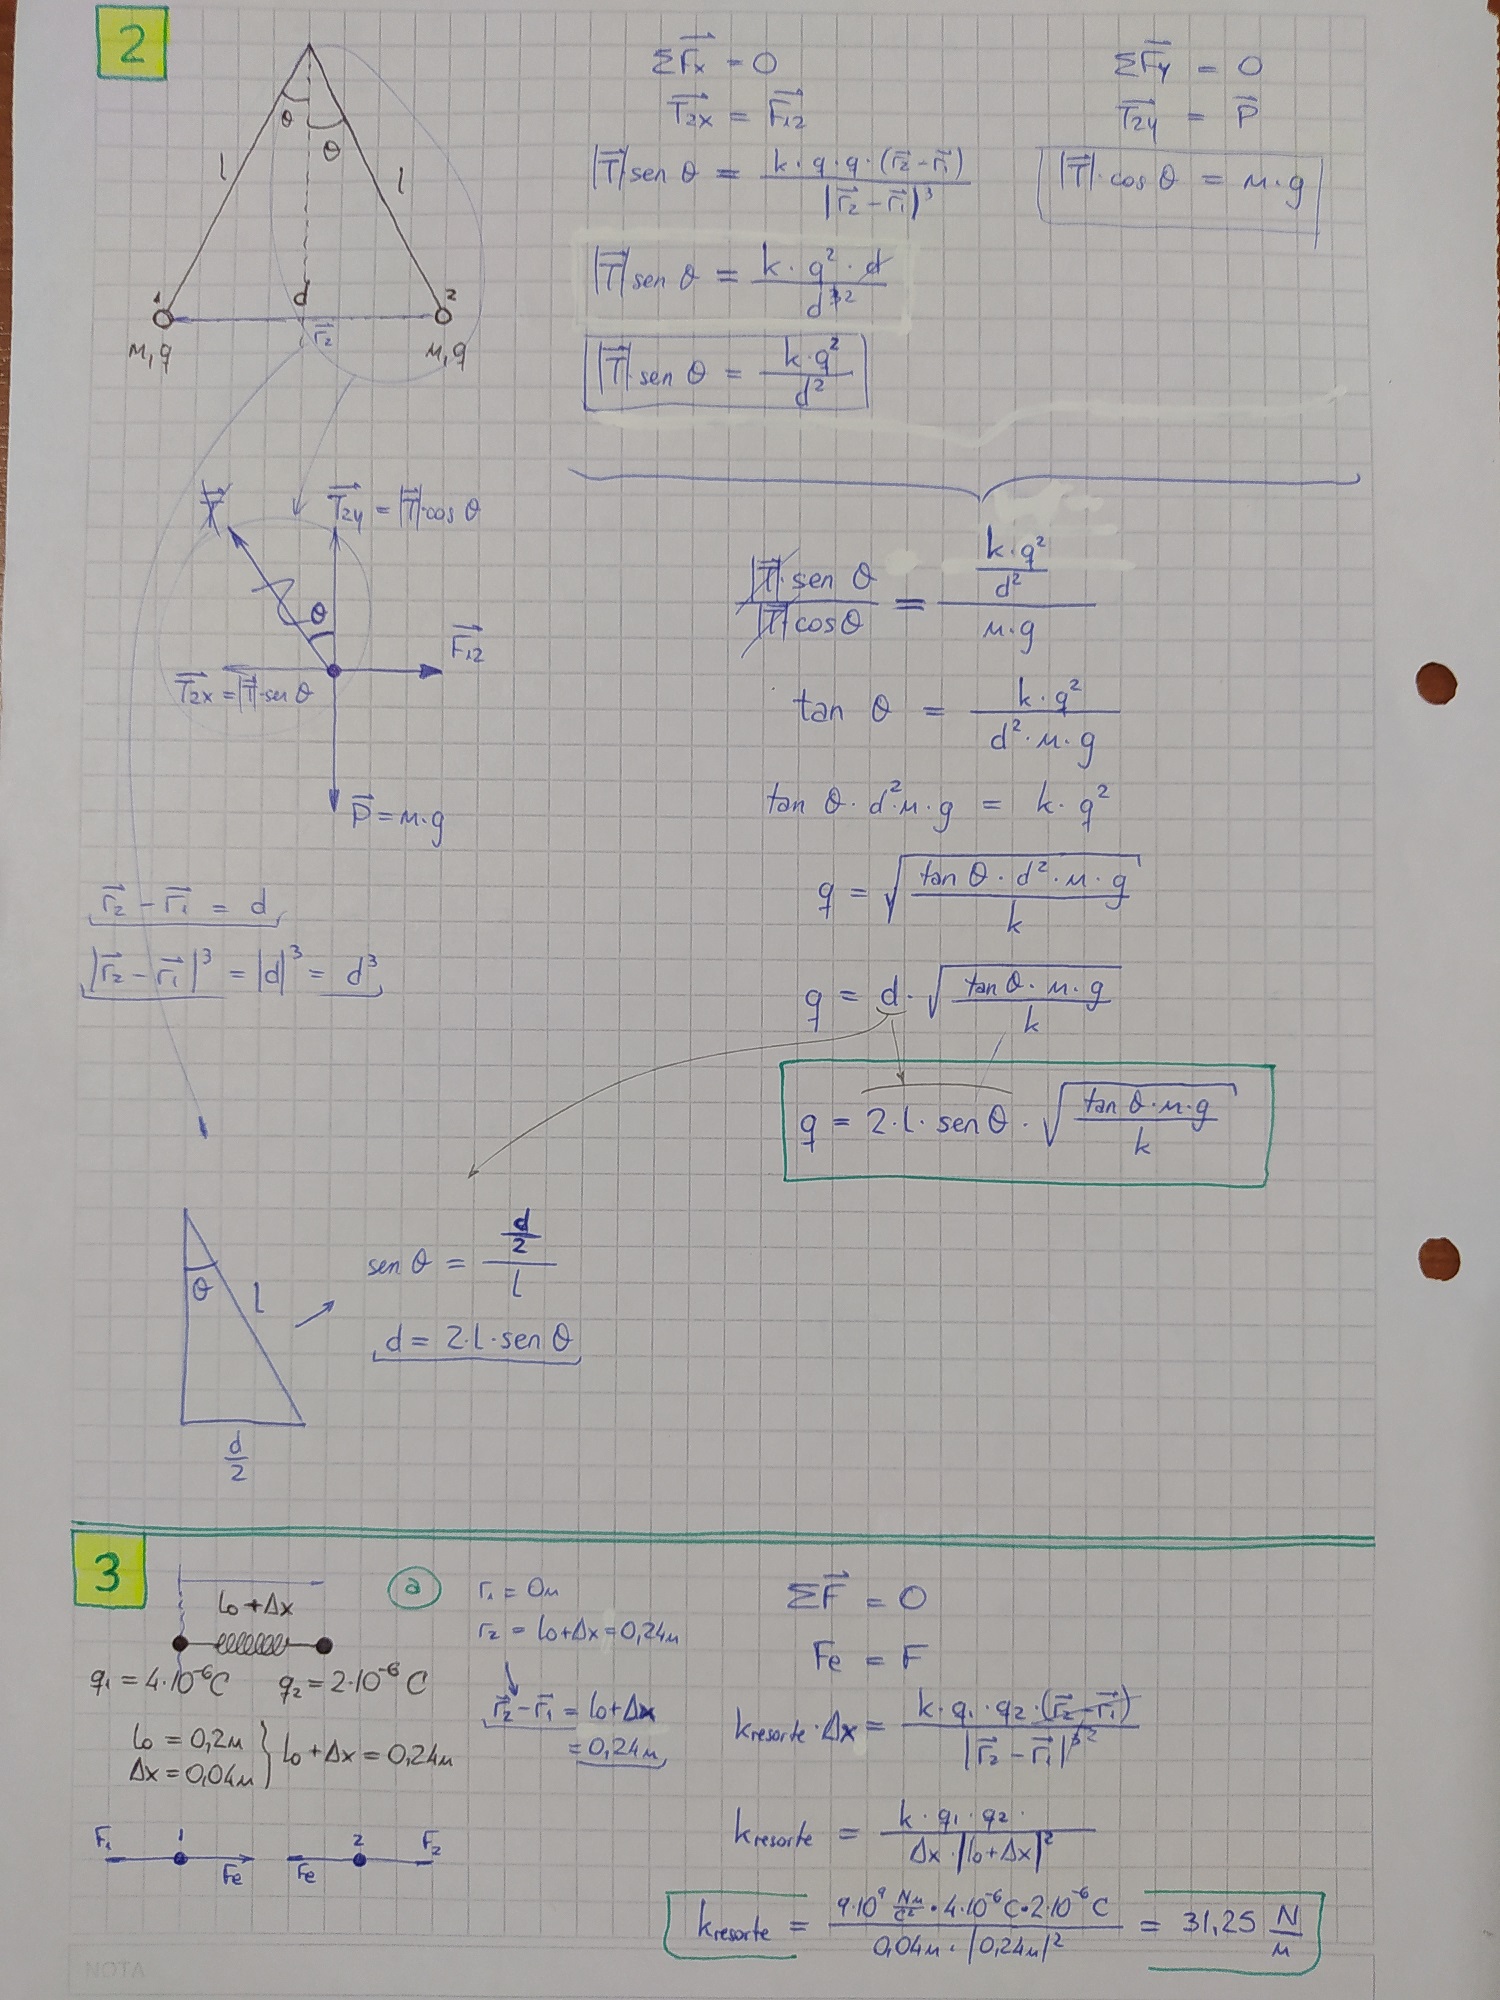 2
θ
θ
l
l
1
d
2
r₂
m,q
m,q
ΣFx = 0
T2x = F12
|T| sen θ = k·q·q·(r₂-r₁) / |r₂-r₁|³
|T| sen θ = k·q²·d / d³ ²
|T|·sen θ = k·q² / d²
ΣFy = 0
T2y = P
|T|·cos θ = m·g
T
T2y = |T|·cos θ
θ
F12
T2x = |T|·sen θ
P = m·g
|T|·sen θ / |T|·cos θ = (k·q² / d²) / m·g
tan θ = k·q² / d²·m·g
tan θ·d²·m·g = k·q²
q = √(tan θ·d²·m·g / k)
q = d·√(tan θ·m·g / k)
q = 2·l·sen θ·√(tan θ·m·g / k)
r₂ - r₁ = d
|r₂ - r₁|³ = |d|³ = d³
θ
l
d/2
sen θ = (d/2) / l
d = 2·l·sen θ
3
l₀+Δx
q₁ = 4·10⁻⁶C q₂ = 2·10⁻⁶ C
l₀ = 0,2m
Δx = 0,04m } l₀ + Δx = 0,24m
F₁ 1 Fe
Fe 2 F₂
a
r₁ = 0m
r₂ = l₀+Δx = 0,24m
r₂ - r₁ = l₀+Δx
= 0,24m
ΣF = 0
Fe = F
kresorte·Δx = k·q₁·q₂·(r₂-r₁) / |r₂-r₁|³ ²
kresorte = k·q₁·q₂· / Δx·|l₀+Δx|²
kresorte = 9·10⁹ Nm/C² · 4·10⁻⁶C·2·10⁻⁶C / 0,04m·|0,24m|² = 31,25 N/m
NOTA